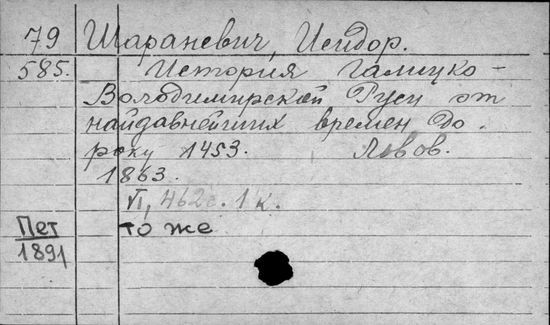 79 Шараневич, Исидор.
585. История Галицко-
Володимирской Руси от
найдавнейших времен до.
року 1453. Львов.
1863.
VI, 462 с. 1 к.
Пет то же
1891